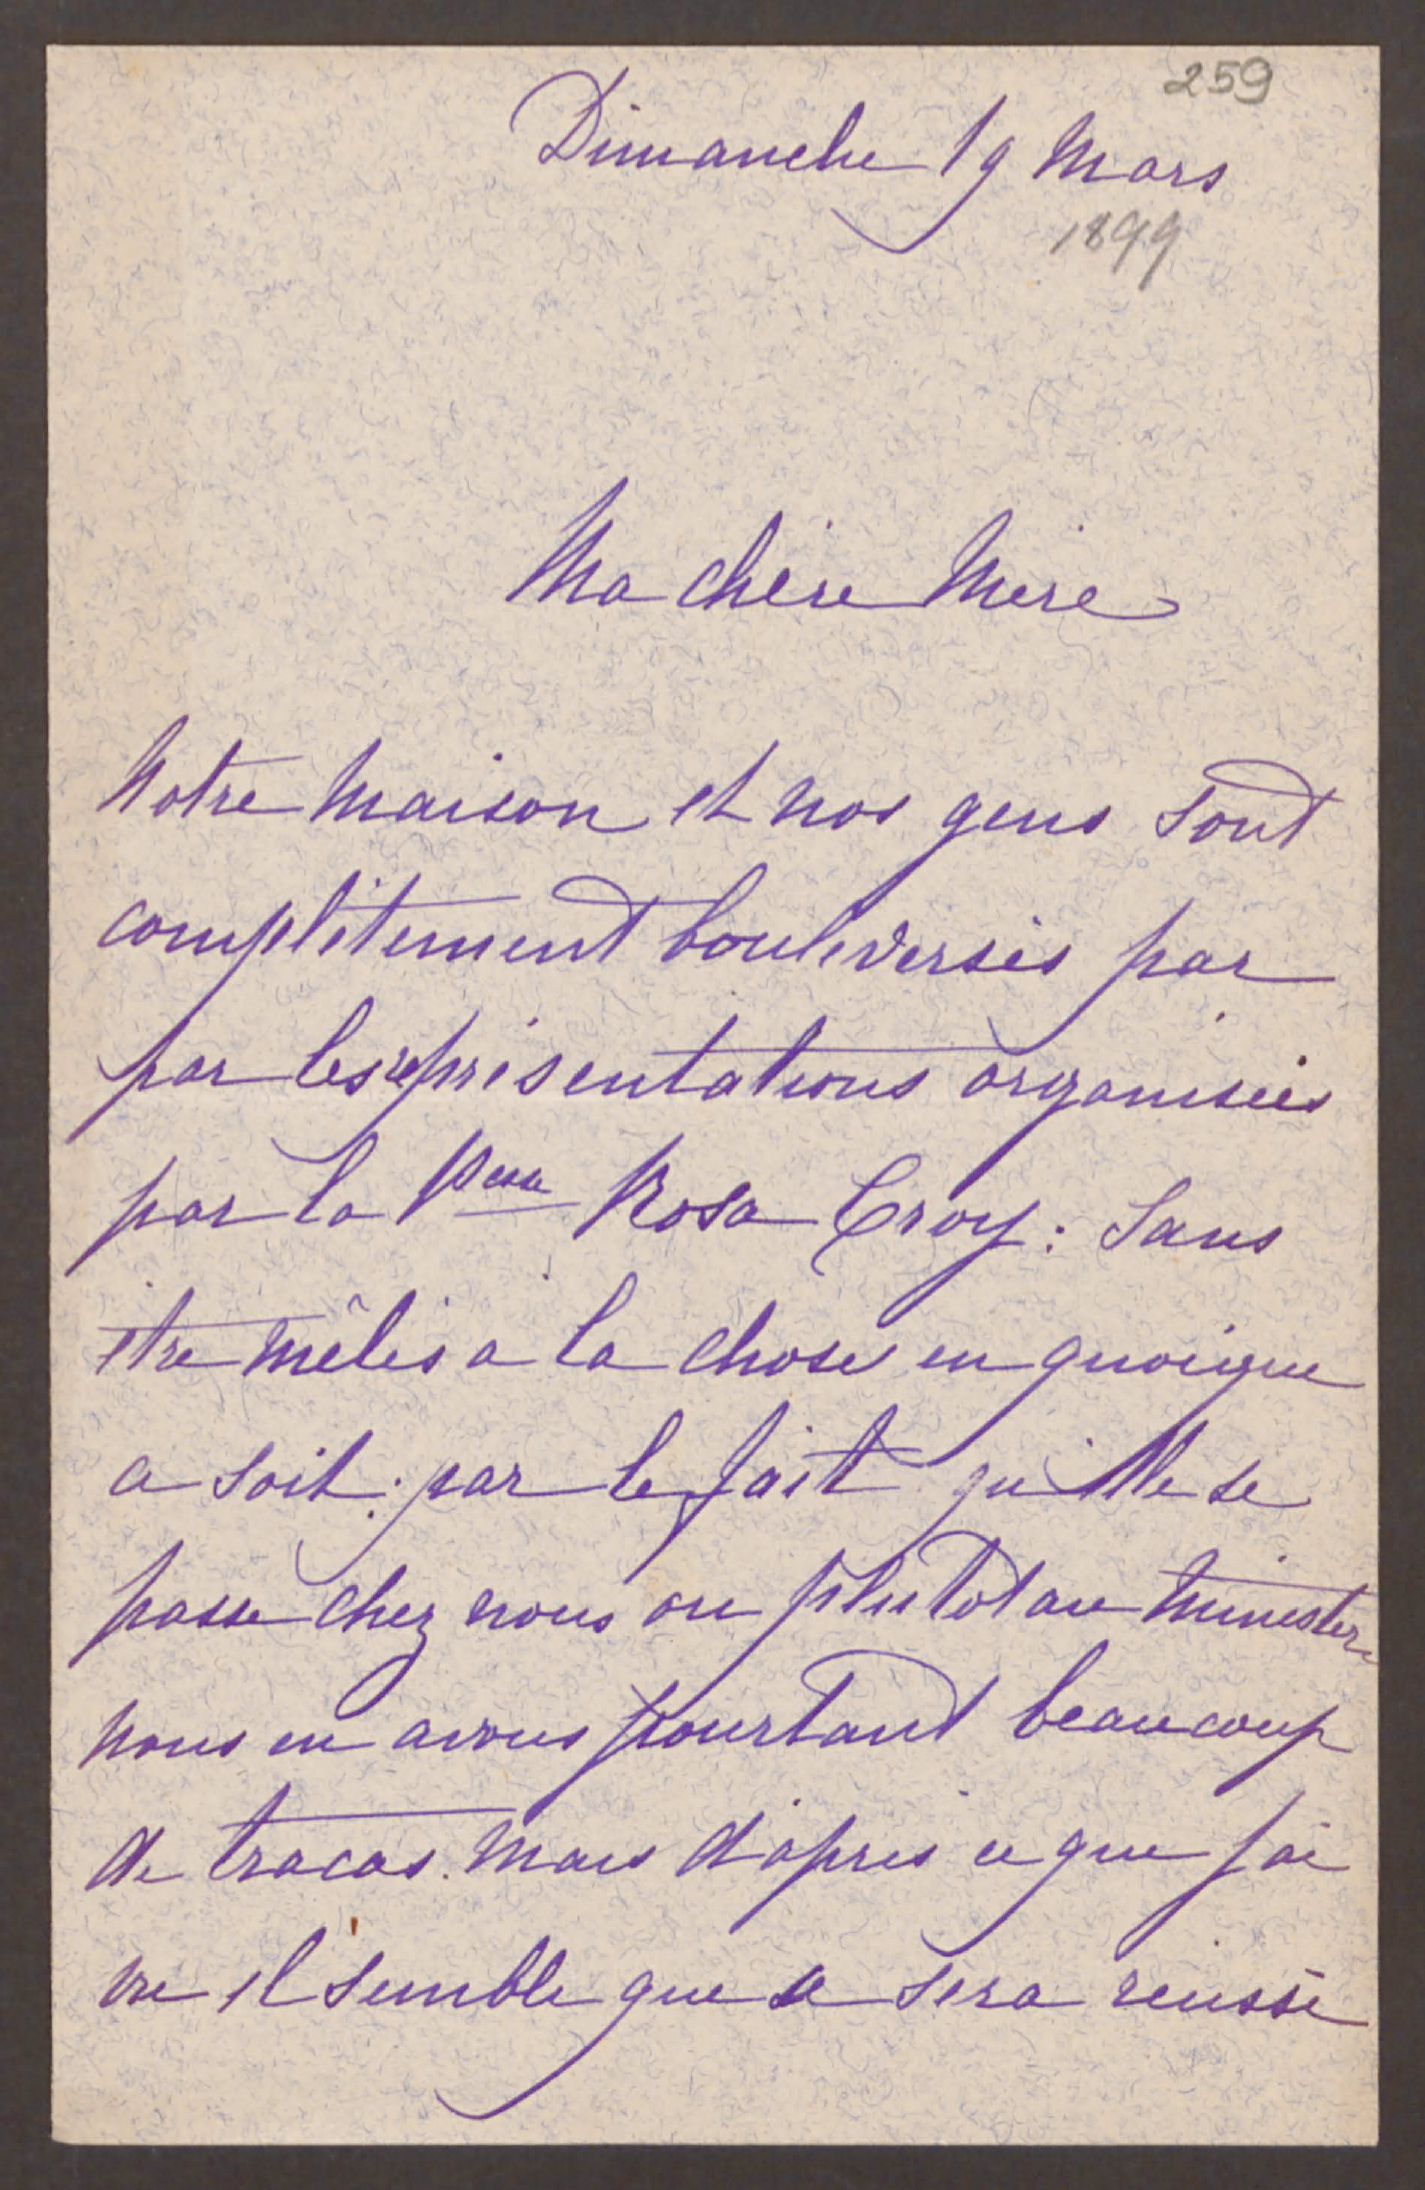 259
Dimanche 19 Mars
1899
Ma chère Mère
Notre Maison et nos gens sont
complètement bouleversés par
par les représentations organisées
par la Pcesse Rosa Croy : Sans
être mêlés a la chose en quoique
ce soit ; par le fait qu'elle se
passe chez nous ou plutot au Ministère
nous en avons pourtant beaucoup
de tracas. Mais d'après ce que j'ai
vu il semble que ce sera réussi